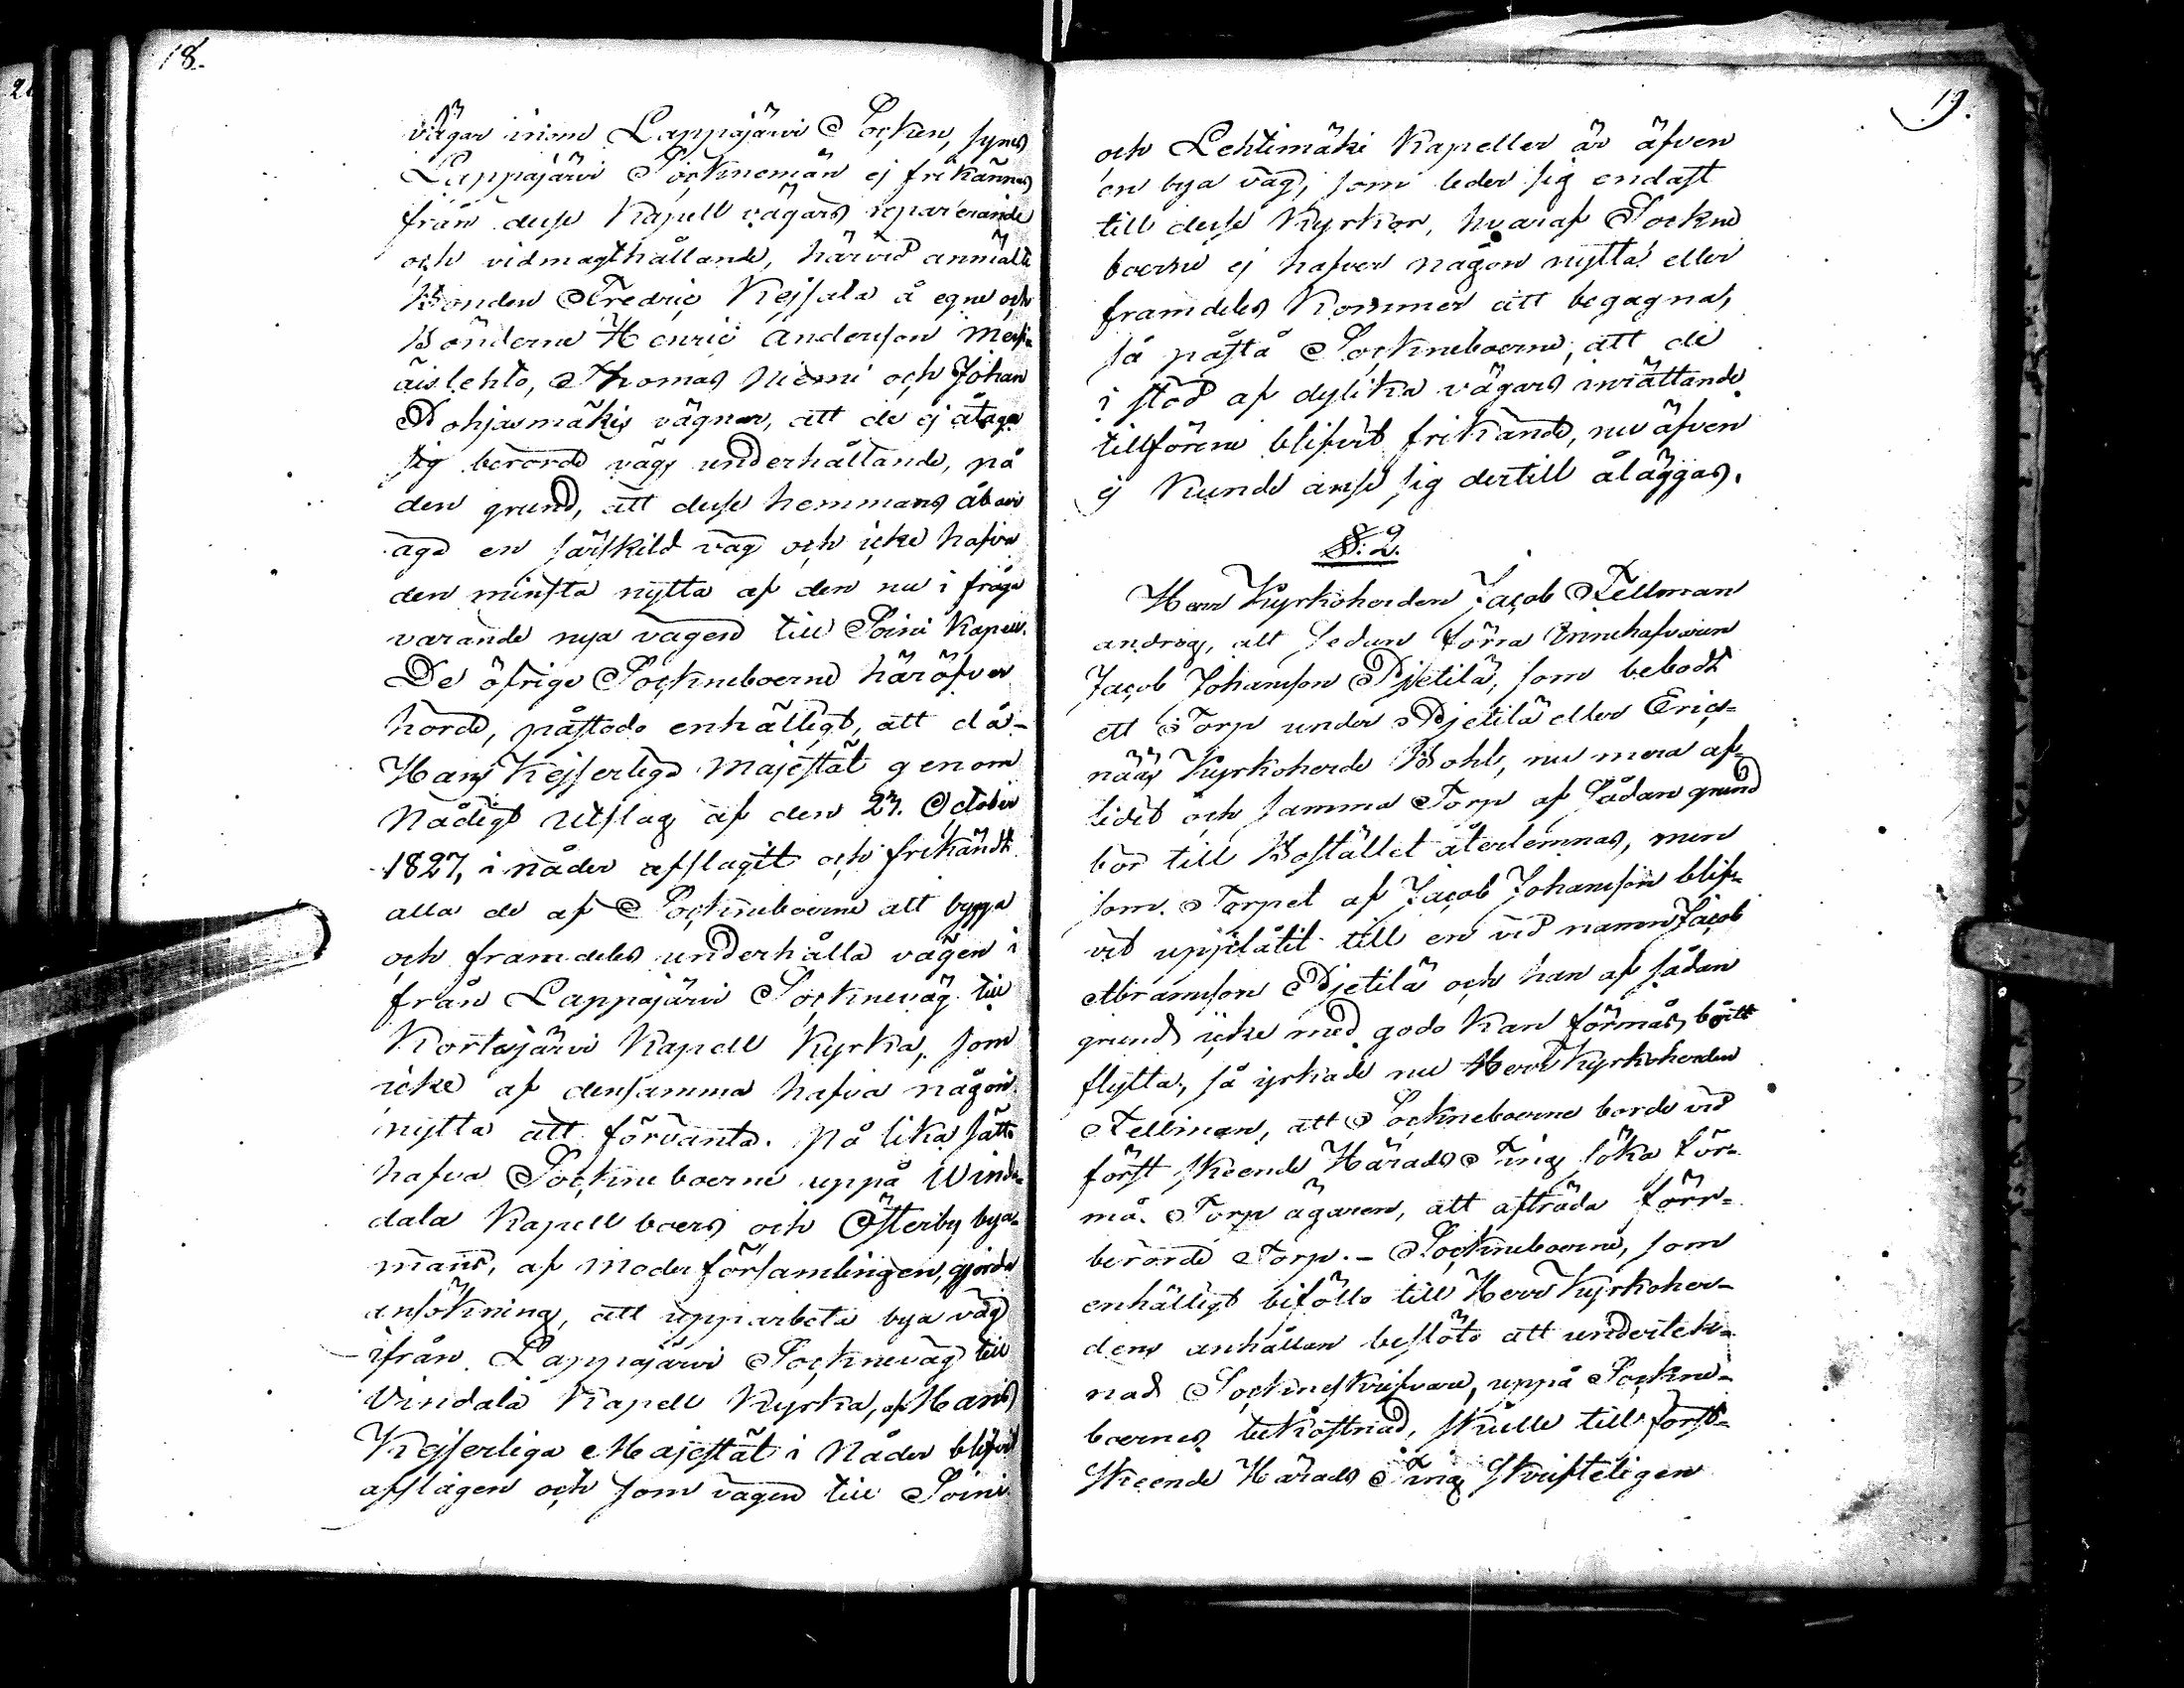 18.
vägar inom Lappajärvi Socken, synes
Lappajärvi Sockneman ej frikännas
från desse Kapell vägars reparerande
och vidmagthållande, härvid anmälte
Bonden Fredric Kejsala å egne och
Bönderne Henric Anderson
äislehto, Thomas Niemi och Johan
Pohjasmäkis vägnar, att de ej åtaga
sig berörde vägs underhållande, på
den grund, att desse hemmans åboer
äga en särskild väg och icke hafva
den minsta nytta af den nu i fråga
varande nya vägen till Soini Kapell.
De öfrige Sockneboerne häröfver
hörde, påstodo enhälligt, att då
Hans Kejserliga Majestät genom
Nådigt Utslag af den 23. October
1827, i nåder afslagit och frikändt
alla de af Sockneboerne att bygga
och framdeles underhålla vägen i
från Lappajärvi Sockneväg till
Kortesjärvi Kapell Kyrka, som
icke af densamma hafva någon
nytta att förvänta. På lika sätt
hafva Sockneboerne uppå Winde-
dala Kapellboers och Österby bya-
mans, af moderförsamlingen, gjorda
ansökning, att upparbeta bya väg
ifrån Lappajärvi Sockneväg till
Vindala Kapell Kyrka, af Hans
Kejserliga Majestät i Nåder blifvit
afslagen och som vägen till Soini
19.
och Lehtimäki Kapeller är äfven
en bya väg, som leder sig endast
till desse Kyrkor, hvaraf Sockne
boerne ej hafver någon nytta eller
framdeles kommer att begagnas,
så påstå Sockneboerne, att de
i stöd af dylika vägars inrättande
tillförene blifvit frikände, nu äfven
ej kunde anse sig dertill åläggas.
§: 2.
Herr Kyrkoherden Jacob Fellman
androg, att sedan förra Innehafvaren
Jacob Johansson Pjetilä, som bebodt
ett Torp under Pjetilä eller Erics-
nääs Kyrkoherde Bohl, nu mera af-
lidit och samma Torp af sådan grund
bör till Bostället återlemnas, men
som Torpet af Jacob Johansson blif-
vit upplåtit till en vid namn Jacob
Abramsson Pjetilä och han af sådan
grund icke med godo kan förmås, bort
flytta, så yrkade nu Herr Kyrkoherden
Fellman, att Sockneboerne borde vid
först skeende Härads Ting söka för-
må Torp ägaren, att afträda förr-
berörde Torp. - Sockneboerne, som
enhälligt biföllo till Herr Kyrkoher-
dens anhållan beslöto att underteck-
nad Sockneskrifvare, uppå Sockne-
boernes bekostnad, skulle till först-
skeende Härads Ting skrifteligen